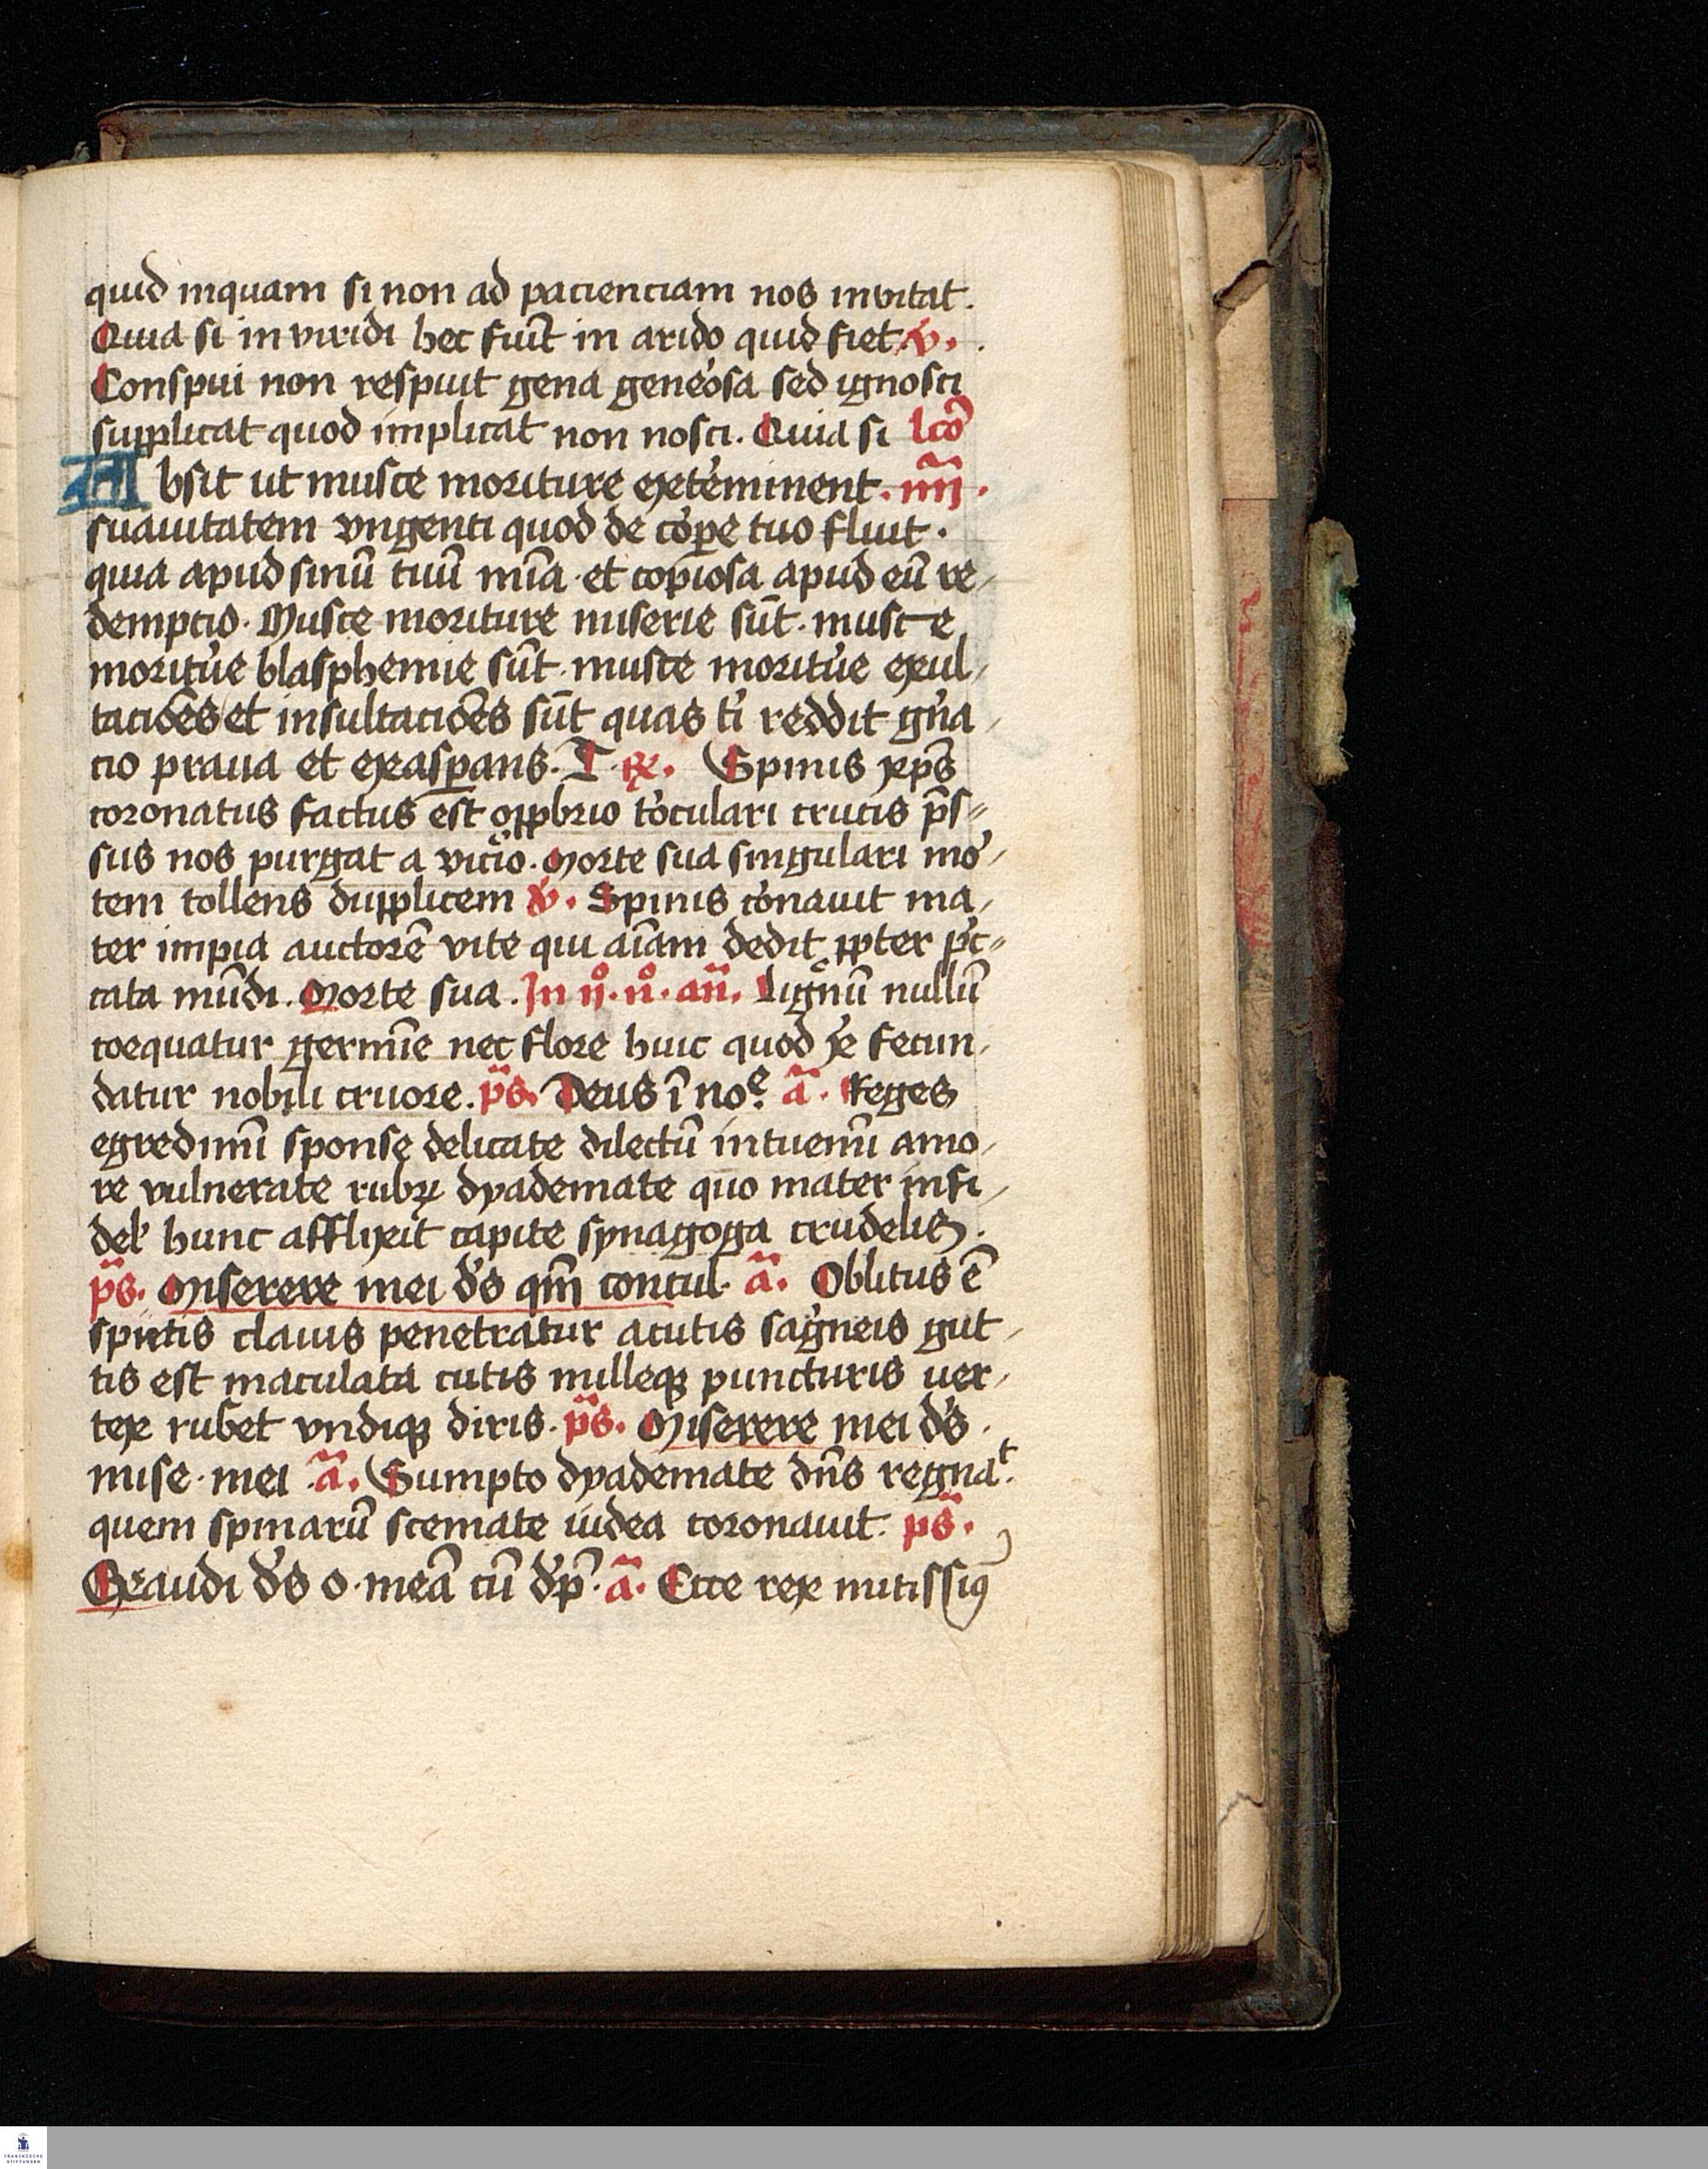 quid inquam si non ad pacienciam nos invitat.
Quia si in viridi hec fiūt in arido quid fiet. v̓.
Conspui non respuit gena gene̓osa sed ignosci
supplicat quod implicat non nosci. Quia si lcō
Absit ut musce moriture exte̓minent. iiij.
suauitatem vngenti quod de co̓ꝑe tuo fluit.
quia apud sinū tuū mīa et copiosa apud eū re⸗
demptio. Musce moriture miserie sūt. musce
moritu̓e blasphemie sūt. musce moritu̓e exul⸗
tacōes et insultacōes sūt quas ti̓ reddit gn̓a⸗
cio praua et exasꝑans. T. ꝶ. Spinis xp̄s
coronatus factus est oꝓpbrio to̓culari crucis p̄s⸗
sus nos purgat a vicio. Morte sua singulari mo̓⸗
tem tollens dupplicem v̓. Spinis co̓nauit ma⸗
ter impia auctorē vite qui aīam dedit ꝓpter pc̓⸗
cata mūdi. Morte sua. In ij͛. n͛. an̄. Lignū nullū
coequatur germīe nec flore huic quod xe̓ fecun⸗
datur nobili cruore. ps̄. Deus ī noͤ. a͞. Reges
egredimī sponse delicate dilectū intuemī amo⸗
re vulnerate rubꝝ dyademate quo mater infi⸗
del̓ hunc afflixit capite synagoga crudelis.
ps̄. Miserere mei ds̓ qm̄ concul. a͞. Oblitus ē
sputis clauis penetratur acutis sag̓neis gut⸗
tis est maculata cutis milleqꝫ puncturis uer⸗
tex rubet vndiqꝫ diris. ps̄. Miserere mei ds̓.
mise. mei a͞. Sumpto dyademate dn̄s regnaᵗ.
quem spinarū scemate iudea coronauit. ps̄.
Exaudi ds̓ o. meā cū dp̓. a͞. Ecce rex mitissiꝯ
FRANCKESCHE
STIFTUNGEN